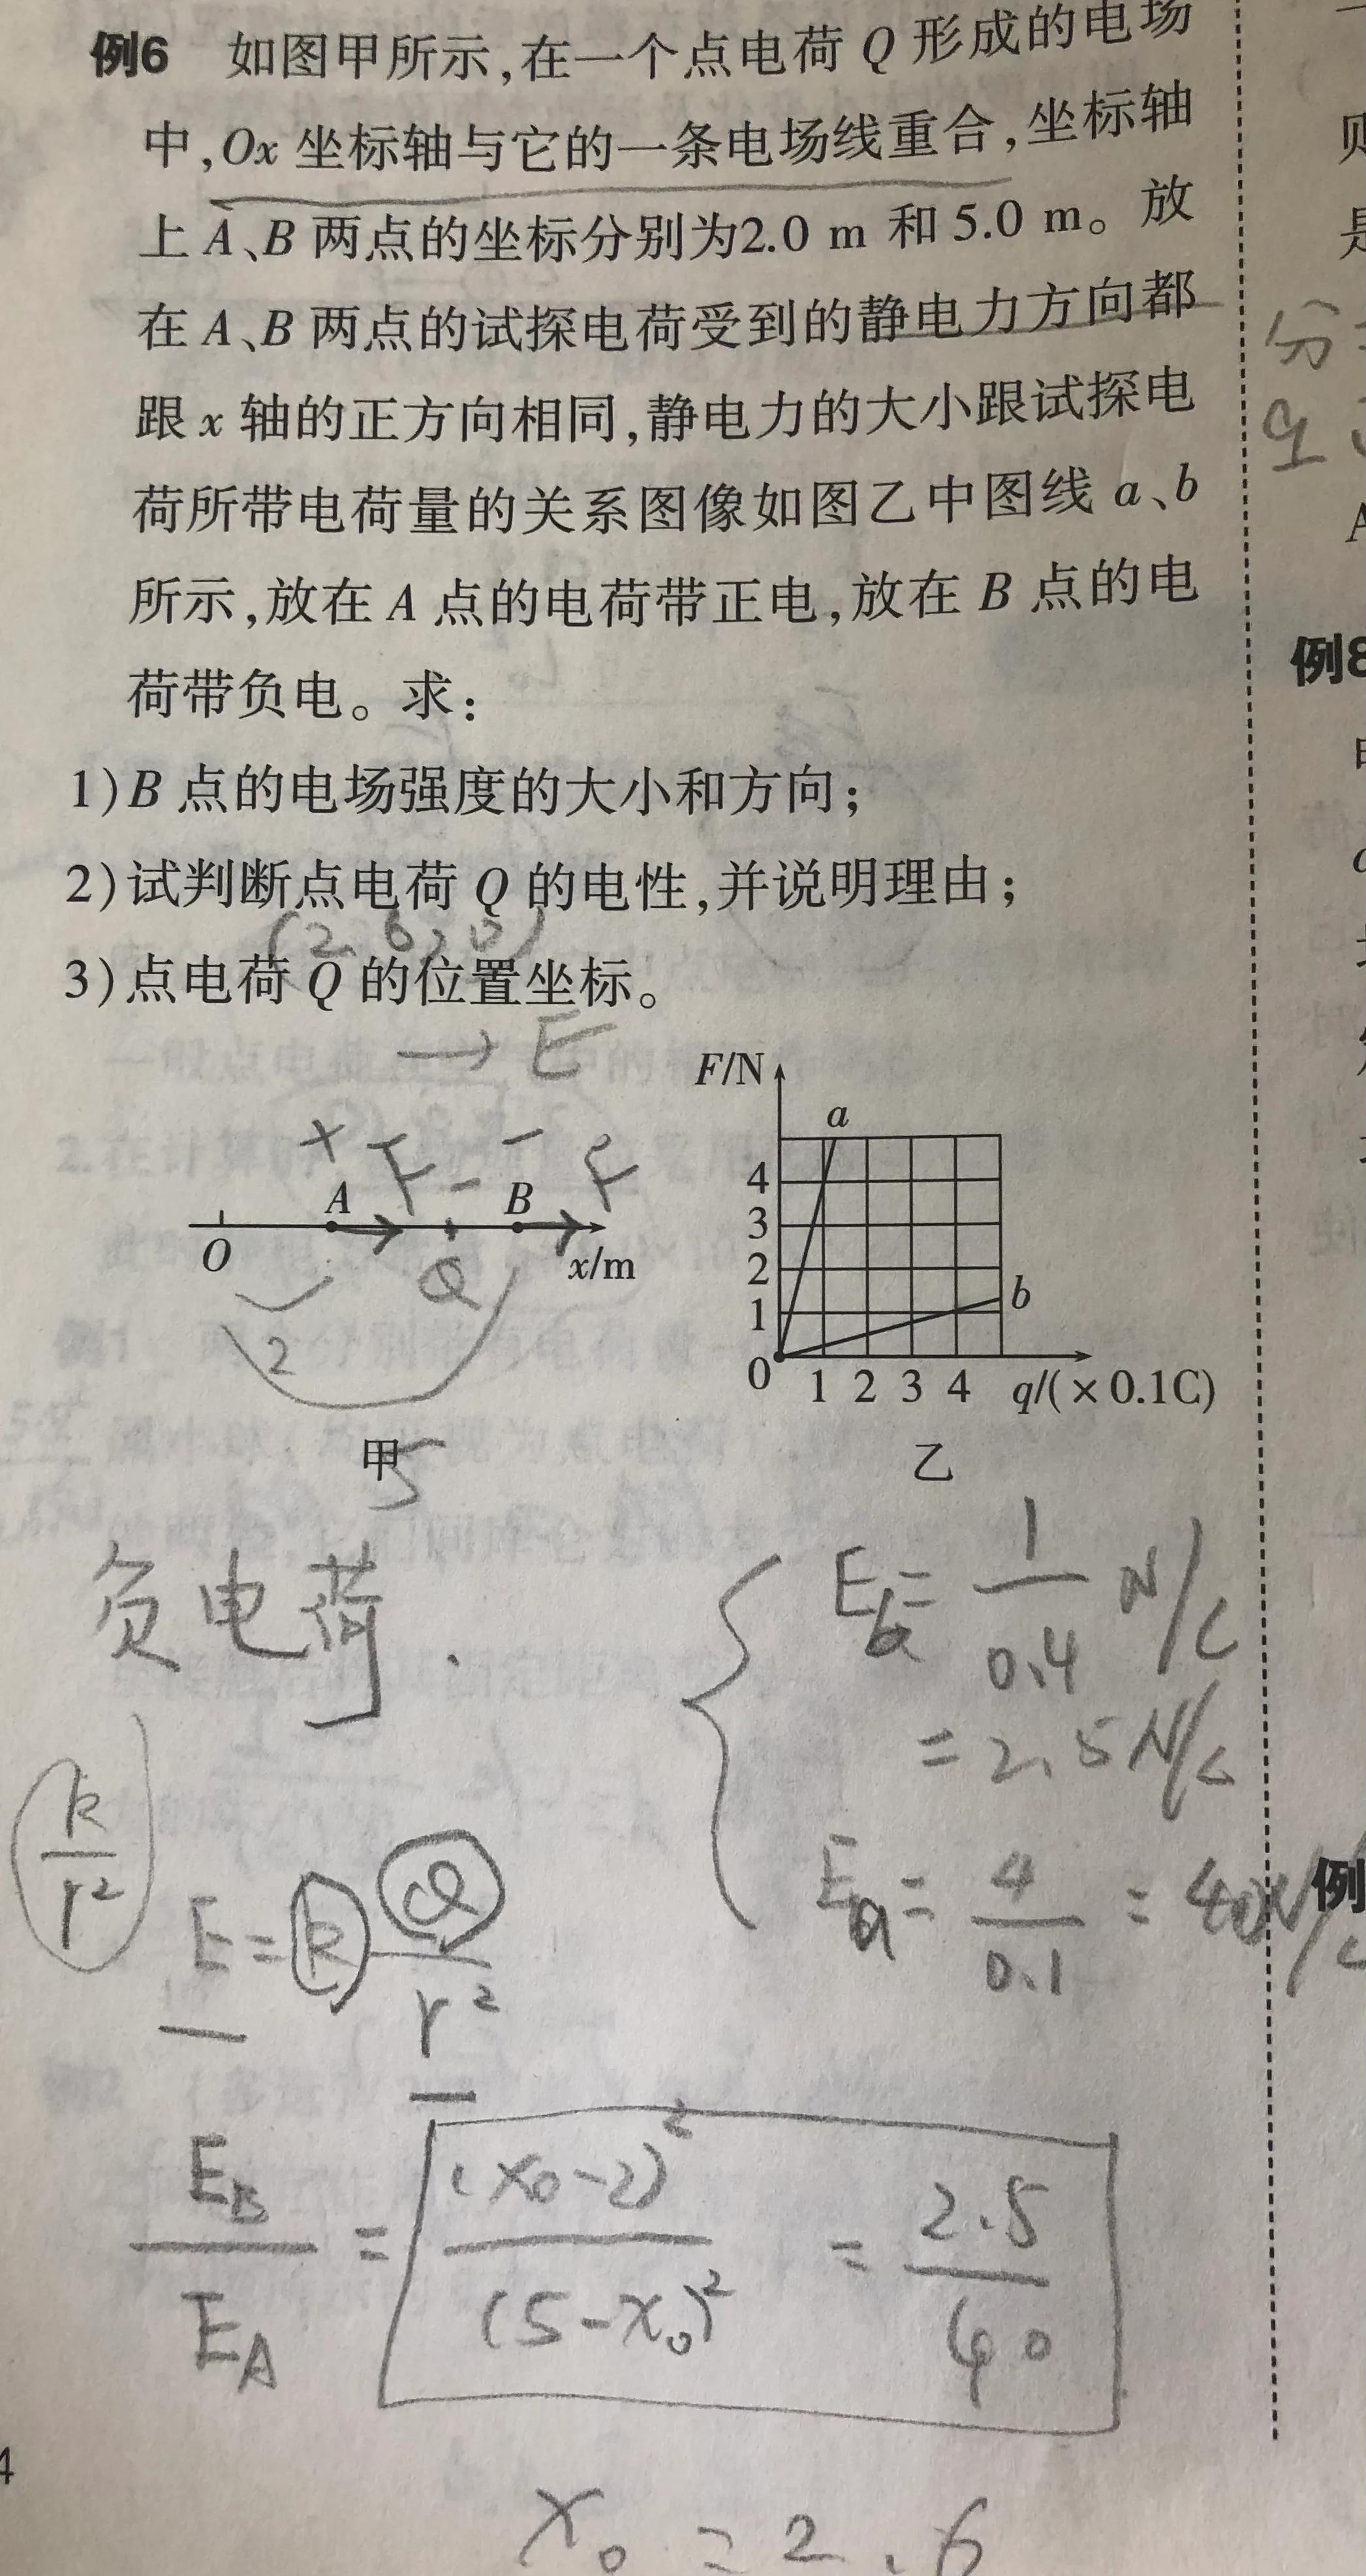 例6 如图甲所示,在一个点电荷 Q 形成的电场
中,Ox 坐标轴与它的一条电场线重合,坐标轴
上 A、B 两点的坐标分别为2.0 m 和 5.0 m。放
在 A、B 两点的试探电荷受到的静电力方向都
跟 x 轴的正方向相同,静电力的大小跟试探电
荷所带电荷量的关系图像如图乙中图线 a、b
所示,放在 A 点的电荷带正电,放在 B 点的电
荷带负电。求:
1)B 点的电场强度的大小和方向;
2)试判断点电荷 Q 的电性,并说明理由;
(2.6,0)
3)点电荷 Q 的位置坐标。
→ E
+ F - - F
A B
O Q x/m
2
5
甲
F/N
a
4
3
2
1 b
0 1 2 3 4 q/(×0.1C)
乙
负电荷.
E_b = 1/0.4 N/C
= 2.5 N/C
E_a = 4/0.1 = 40N/C
k/r²
E = k Q/r²
E_B/E_A = (x₀-2)²/(5-x₀)² = 2.5/40
x₀ = 2.6
分
q
例8
例
4